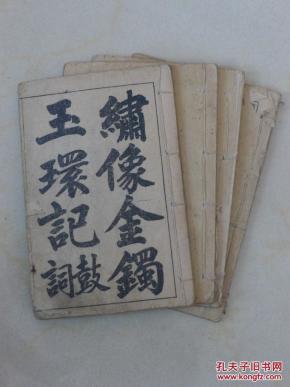 繡像金鐲
玉環記鼓詞
孔夫子旧书网
www.kongfz.com